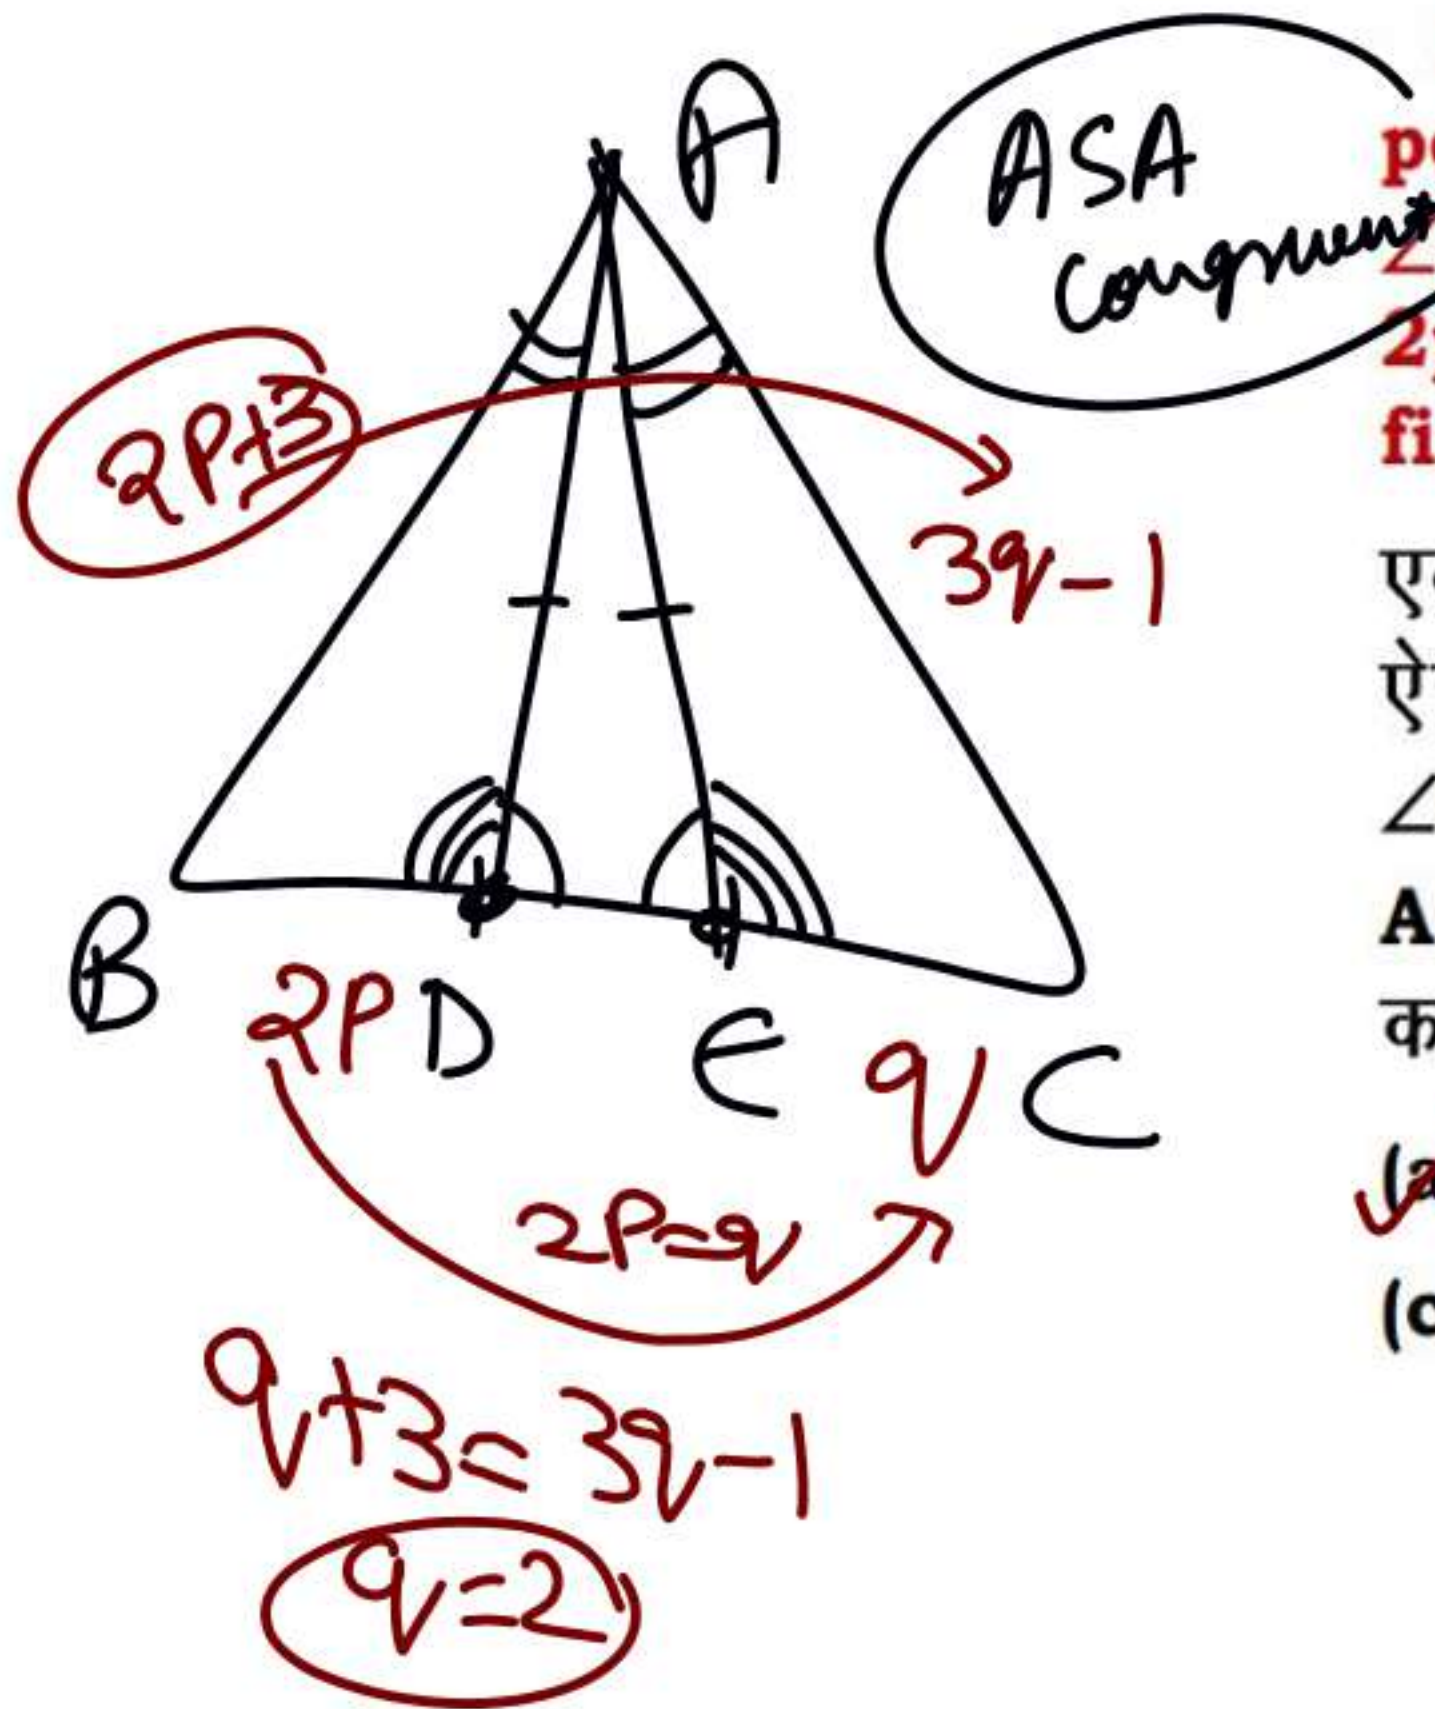 A
ASA
congruent
2P+3
3q-1
B
2P
D
E
q
C
2P=q
q+3=3q-1
q=2
fi
A
(a
(c